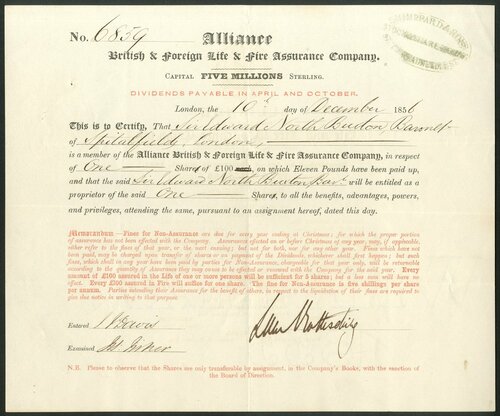 No. 6859 Alliance
British & Foreign Life & Fire Assurance Company.
CAPITAL FIVE MILLIONS STERLING.
DIVIDENDS PAYABLE IN APRIL AND OCTOBER.
London, the 10th day of December 1856
This is to Certify, That Sir Edward North Buxton Baronet
of Spitalfields, London,
is a member of the Alliance British & Foreign Life & Fire Assurance Company, in respect
of One Share of £100 on which Eleven Pounds have been paid up,
and that the said Sir Edward North Buxton Bart. will be entitled as a
proprietor of the said One Share, to all the benefits, advantages, powers,
and privileges, attending the same, pursuant to an assignment hereof, dated this day.
MEMORANDUM.—Fines for Non-Assurance are due for every year ending at Christmas; for which the proper portion
of assurance has not been effected with the Company. Assurance effected on or before Christmas of any year, may, if applicable,
either refer to the fines of that year, or, the next ensuing; but not for both, nor for any other year. Fines which have not
been paid, may be charged upon transfer of shares or on payment of the Dividends, whichever shall first happen; but such
fines, which shall in any year have been paid by parties for Non-Assurance, chargeable for that year only, will be returnable
according to the quantity of Assurance they may cause to be effected or renewed with the Company for the said year. Every
amount of £100 assured in the life of one or more persons will be sufficient for 5 shares; but a less sum will have no
effect. Every £500 assured in Fire will suffice for one share. The fine for Non-Assurance is five shillings per share
per annum. Parties extending their Assurance for the benefit of others, in respect to the liquidation of their fines are required to
give due notice in writing to that purpose.
Entered
Examined
N.B. Please to observe that the Shares are only transferable by assignment, in the Company's Books, with the sanction of
the Board of Direction.